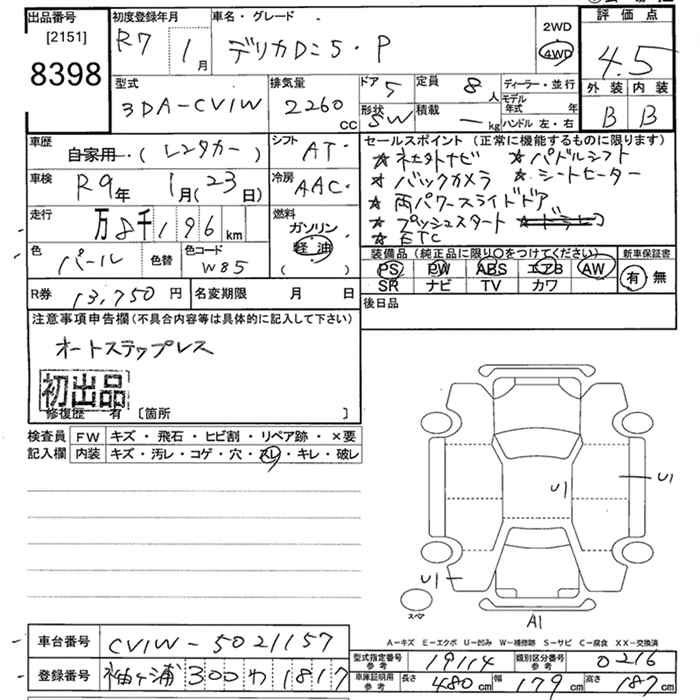 出品番号 [2151]
8398
初度登録年月 R7 1月
車名・グレード デリカD:5・P
2WD 4WD
評価点 4.5
型式 3DA-CV1W
排気量 2260 cc
ドア 5
定員 8人
形状 SW
積載 ー kg
ディーラー・並行
モデル年式 年
ハンドル 左・右
外装 内装
B B
車歴 自家用・(レンタカー)
シフト AT・
車検 R9年 1月(23日)
冷房 AAC・
走行 万8千196km
燃料 ガソリン 軽油 ( )
色 パール 色替
色コード W85
R券 13,750円
名変期限 月 日
セールスポイント(正常に機能するものに限ります)
☆ネエトナビ ☆パドルシフト
☆バックカメラ ☆シートヒーター
☆両パワースライドドア
☆プッシュスタート
☆ETC
装備品(純正品に限り〇をつけてください) 新車保証書
PS PW ABS エアB AW 有 無
SR ナビ TV カワ
後日品
注意事項申告欄(不具合内容等は具体的に記入して下さい)
オートステップレス
初出品
修復歴 有 [箇所 ]
検査員 FW キズ・飛石・ヒビ割・リペア跡・×要
記入欄 内装 キズ・汚レ・コゲ・穴・スレ・キレ・破レ
U1
U1
U1
スペア
A1
A-キズ E-エクボ U-凹み W-補修跡 S-サビ C-腐食 XX-交換済
車台番号 CV1W-5021157
登録番号 袖ヶ浦300わ1817
型式指定番号 参考 19114
類別区分番号 参考 0216
車庫証明用 参考 長さ 480cm 幅 179cm 高さ 187cm